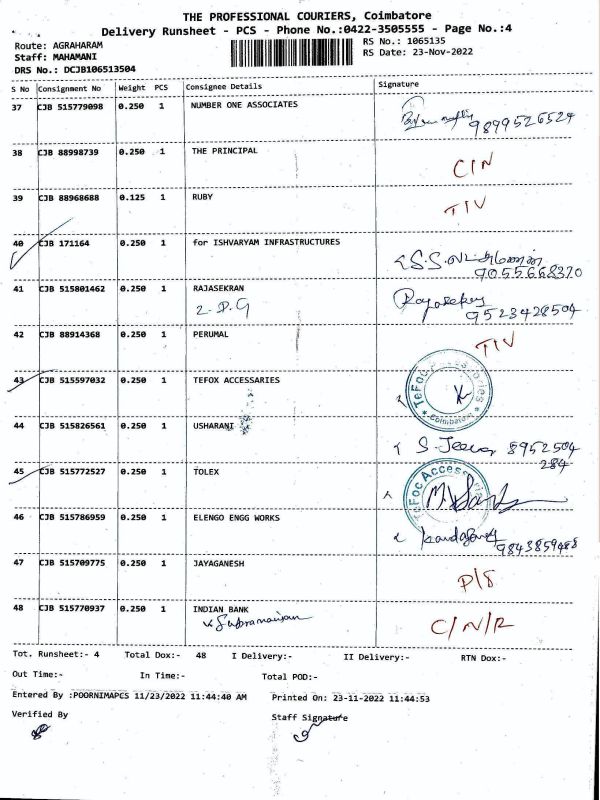 THE PROFESSIONAL COURIERS, Coimbatore
Delivery Runsheet - PCS - Phone No.:0422-3505555 - Page No.:4
Route: AGRAHARAM
Staff: MAHAMANI
DRS No.: DCJB106513504
RS No.: 1065135
RS Date: 23-Nov-2022
S No Consignment No Weight PCS Consignee Details Signature
37 CJB 515779098 0.250 1 NUMBER ONE ASSOCIATES
9899526524
38 CJB 88998739 0.250 1 THE PRINCIPAL C/N
39 CJB 88968688 0.125 1 RUBY TIV
40 CJB 171164 0.250 1 for ISHVARYAM INFRASTRUCTURES
9055668370
41 CJB 515801462 0.250 1 RAJASEKRAN Rajasekar
9523428504
42 CJB 88914368 0.250 1 PERUMAL TIV
43 CJB 515597032 0.250 1 TEFOX ACCESSARIES
TeFoc Accessories * Coimbatore *
44 CJB 515826561 0.250 1 USHARANI
S. Jeeva 8952504
284
45 CJB 515772527 0.250 1 TOLEX
TeFoc Access
46 CJB 515786959 0.250 1 ELENGO ENGG WORKS
9843859488
47 CJB 515709775 0.250 1 JAYAGANESH P/S
48 CJB 515770937 0.250 1 INDIAN BANK C/N/R
Tot. Runsheet:- 4 Total Dox:- 48 I Delivery:- II Delivery:- RTN Dox:-
Out Time:- In Time:- Total POD:-
Entered By :POORNIMAPCS 11/23/2022 11:44:40 AM Printed On: 23-11-2022 11:44:53
Verified By Staff Signature